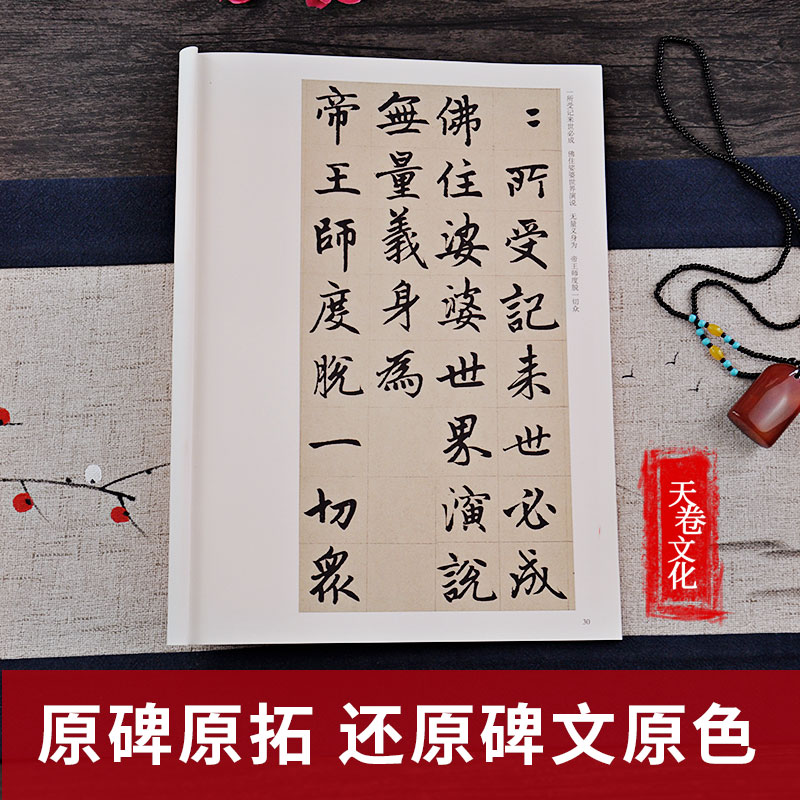 一所受记来世必成 佛住娑婆世界演说 无量义身为 帝王师度脱一切众
〻所受記来世必成
佛住娑婆世界演說
無量義身為
帝王師度脱一切眾
30
天卷文化
原碑原拓 还原碑文原色